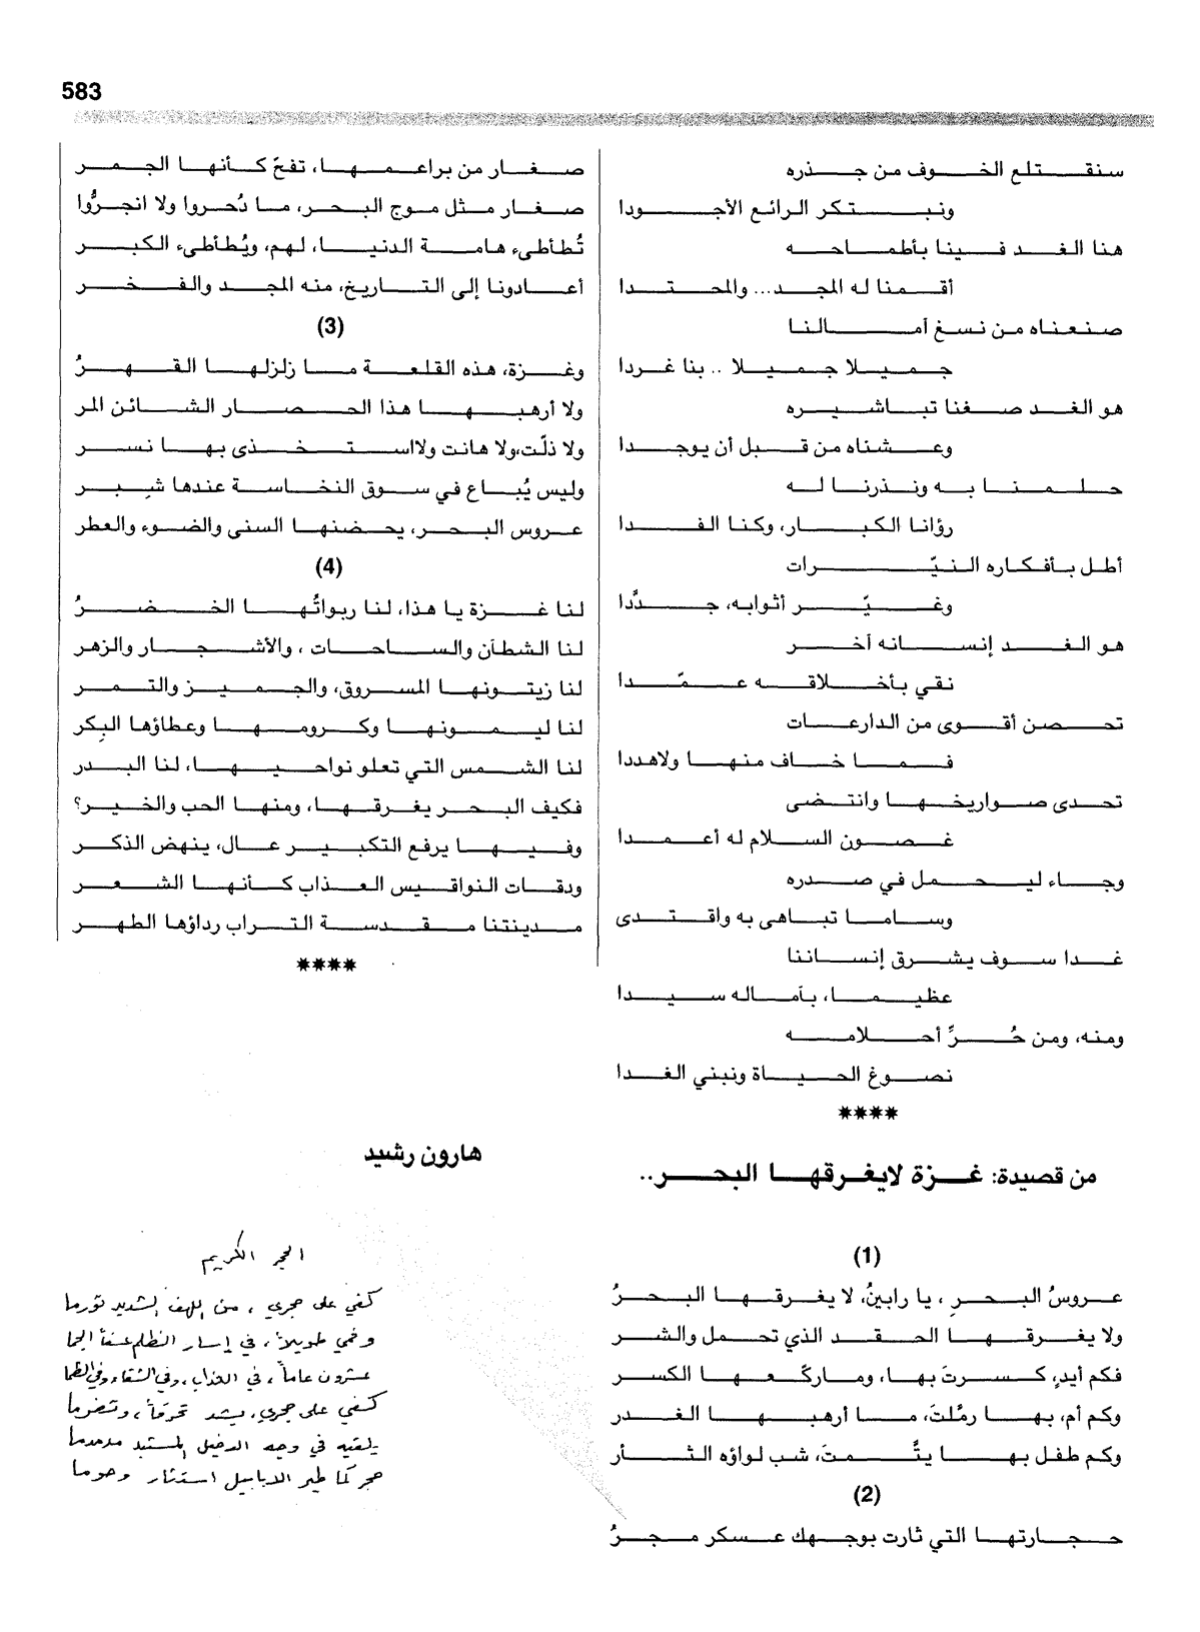 583
سنقتلع الخوف من جذره
ونبتكر الرائع الأجودا
هنا الغد فينا بأطماحه
أقمنا له المجد... والمحتدا
صنعناه من نسغ أمالنا
جميلا جميلا .. بنا غردا
هو الغد صغنا تباشيره
وعشناه من قبل أن يوجدا
حلمنا به ونذرنا له
رؤانا الكبار، وكنا الفدا
أطل بأفكاره النيّرات
وغيّر أثوابه، جدُّدا
هو الغد إنسانه أخر
نقي بأخلاقه عمّدا
تحصن أقوى من الدارعات
فما خاف منها ولاهددا
تحدى صواريخها وانتضى
غصون السلام له أعمدا
وجاء ليحمل في صدره
وساما تباهى به واقتدى
غدا سوف يشرق إنساننا
عظيما، بأماله سيدا
ومنه، ومن حُرِّ أحلامه
نصوغ الحياة ونبني الغدا
****
من قصيدة: غزة لايغرقها البحر..
(1)
عروسُ البحرِ ، يا رابينُ، لا يغرقها البحرُ
ولا يغرقها الحقد الذي تحمل والشر
فكم أيدٍ، كسرتَ بها، وماركّعها الكسر
وكم أم، بها رمَّلتَ، ما أرهبها الغدر
وكم طفل بها يتَّمتَ، شب لواؤه الثأر
(2)
حجارتها التي ثارت بوجهك عسكر مجرُ
صغار من براعمها، تفحّ كأنها الجمر
صغار مثل موج البحر، ما دُحروا ولا انجرُّوا
تُطأطىء هامة الدنيا، لهم، ويُطأطىء الكبر
أعادونا إلى التاريخ، منه المجد والفخر
(3)
وغزة، هذه القلعة ما زلزلها القهرُ
ولا أرهبها هذا الحصار الشائن المر
ولا ذلّت،ولا هانت ولااستخذى بها نسر
وليس يُباع في سوق النخاسة عندها شبِر
عروس البحر، يحضنها السنى والضوء والعطر
(4)
لنا غزة يا هذا، لنا ربواتُها الخضرُ
لنا الشطآن والساحات ، والأشجار والزهر
لنا زيتونها المسروق، والجميز والتمر
لنا ليمونها وكرومها وعطاؤها البِكر
لنا الشمس التي تعلو نواحيها، لنا البدر
فكيف البحر يغرقها، ومنها الحب والخير؟
وفيها يرفع التكبير عال، ينهض الذكر
ودقات النواقيس العذاب كأنها الشعر
مدينتنا مقدسة التراب رداؤها الطهر
****
هارون رشيد
الحجر الكريم
كفي على حجري ، من اللهف الشديد تورما
وفمي طويلاً ، في إسار الظلم عسفاً ألجما
عشرون عاماً ، في العذاب ، وفي الشقاء وفي الظما
كفي على حجري، يشد تحرقاً ، وتضرما
يلقيه في وجه الدخيل المستبد مدمدما
حجر كما طير الابابيل استثار وحوما